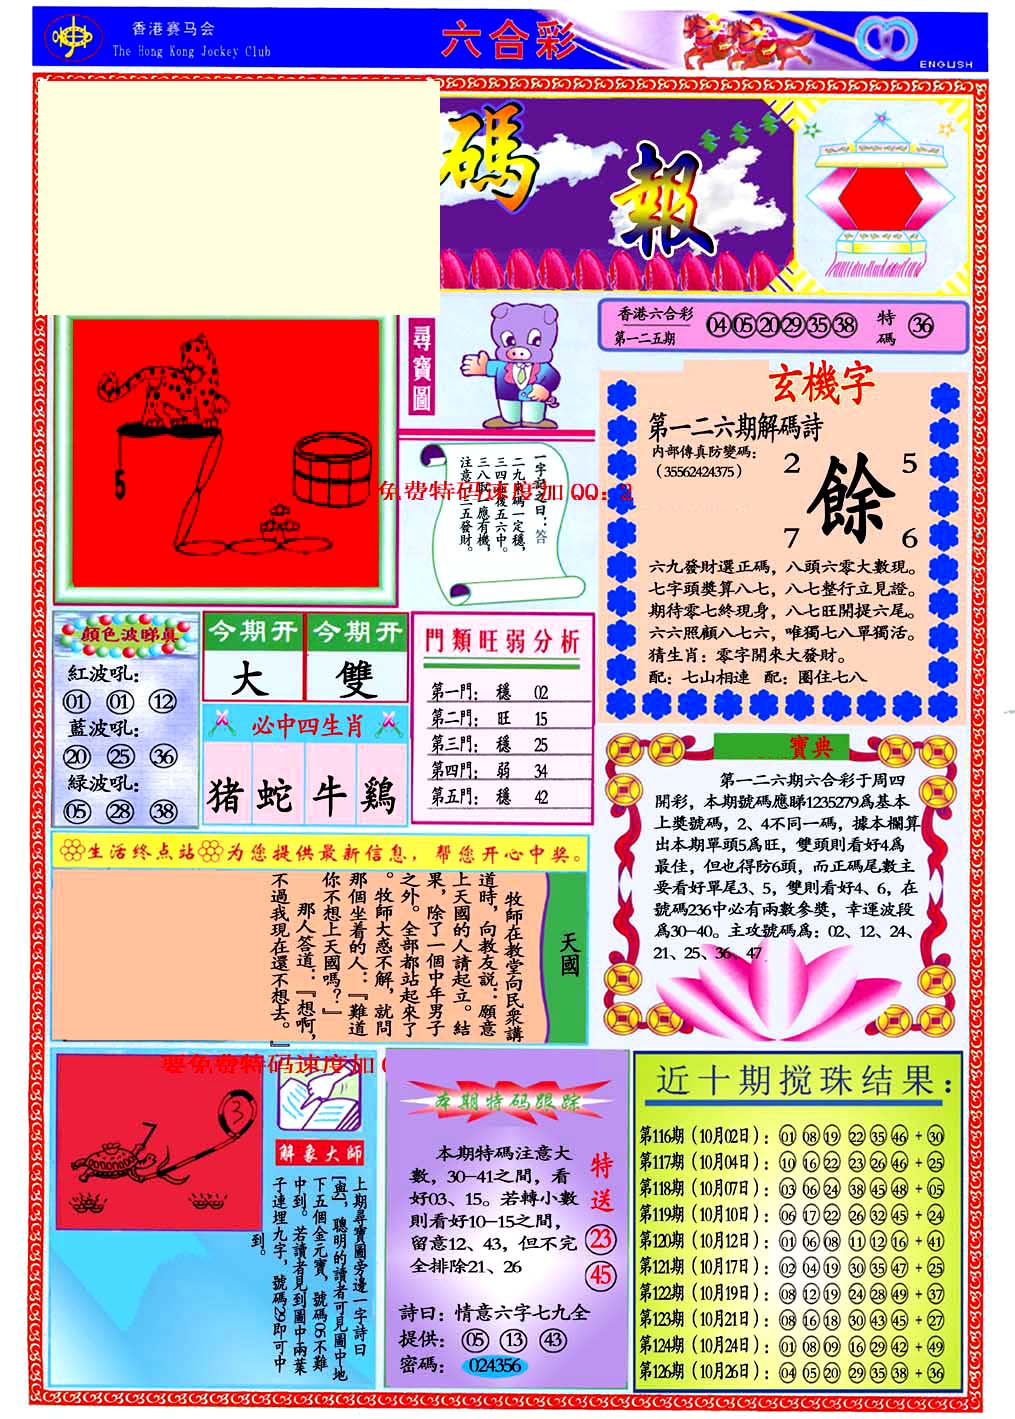 香港赛马会
The Hong Kong Jockey Club
六合彩
ENGLISH
碼
報
尋寶圖
5
香港六合彩
第一二五期
04 05 20 29 35 38
特碼
36
玄機字
第一二六期解碼詩
内部傳真防變碼:
(35562424375)
2
5
餘
7
6
六九發財選正碼，八頭六零大數現。
七字頭獎算八七，八七整行立見證。
期待零七終現身，八七旺開提六尾。
六六照顧八七六，唯獨七八單獨活。
猜生肖：零字開來大發財。
配：七山相連 配：圈住七八
一字記之曰：答
注意二五發財。
免费特码速度加 QQ：2
顏色波睇真
紅波吼:
01 01 12
藍波吼:
20 25 36
緑波吼:
05 28 38
今期开
今期开
大
雙
必中四生肖
猪 蛇 牛 鷄
門類旺弱分析
第一門： 穩 02
第二門： 旺 15
第三門： 穩 25
第四門： 弱 34
第五門： 穩 42
寶典
第一二六期六合彩于周四
開彩，本期號碼應睇1235279爲基本
上獎號碼，2、4不同一碼，據本欄算
出本期單頭5爲旺，雙頭則看好4爲
最佳，但也得防6頭，而正碼尾數主
要看好單尾3、5，雙則看好4、6，在
號碼236中必有兩數參獎，幸運波段
爲30—40。主攻號碼爲：02、12、24、
21、25、36、47
生活终点站 为您提供最新信息，帮您开心中奖。
天國
牧師在教堂向民衆講
道時，向教友説：願意
上天國的人請起立。結
果，除了一個中年男子
之外。全部都站起來了
。牧師大惑不解，就問
那個坐着的人：『難道
你不想上天國嗎？』
那人答道：『想啊，
不過我現在還不想去。』
要免费特码速度加
3
7
解象大師
上期尋寶圖旁邊一字詩曰
[與]，聰明的讀者可見圖中地
下五個金元寶，號碼05不難
中到。若讀者見到圖中兩葉
子連埋九字，號碼29即可中
到。
本期特码跟踪
本期特碼注意大
數，30—41之間，看
好03、15。若轉小數
則看好10—15之間，
留意12、43，但不完
全排除21、26
特送
23
45
詩曰：情意六字七九全
提供： 05 13 43
密碼： 024356
近十期搅珠结果：
第116期（10月02日）：01 08 19 22 35 46 + 30
第117期（10月04日）：10 16 22 23 26 46 + 25
第118期（10月07日）：03 06 24 38 45 48 + 05
第119期（10月10日）：06 17 22 26 32 45 + 24
第120期（10月12日）：01 06 08 11 12 16 + 41
第121期（10月17日）：02 04 19 30 35 47 + 25
第122期（10月19日）：08 12 19 24 28 49 + 37
第123期（10月21日）：08 16 18 30 43 45 + 27
第124期（10月24日）：01 08 09 16 29 42 + 49
第126期（10月26日）：04 05 20 29 35 38 + 36